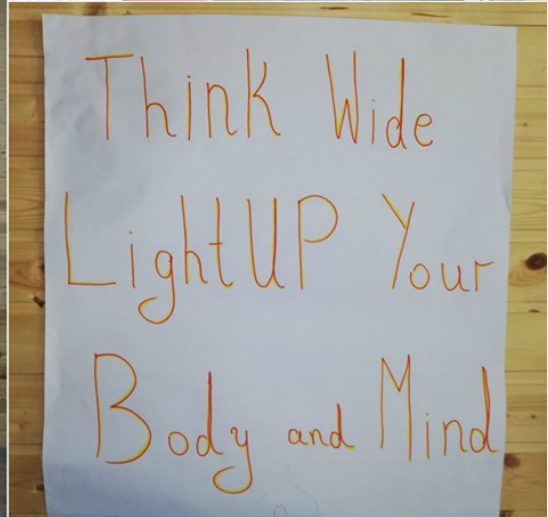 Think Wide
LightUP Your
Body and Mind